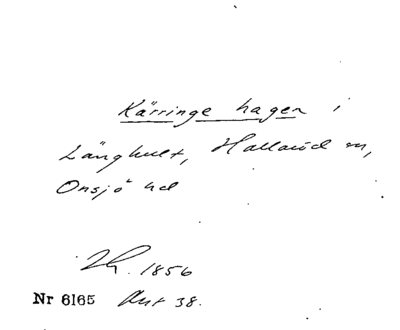 Kärringe hagen i
Långhult, Halland m,
Onsjö hd
Th. 1856
Nr 6165 Ant 38.